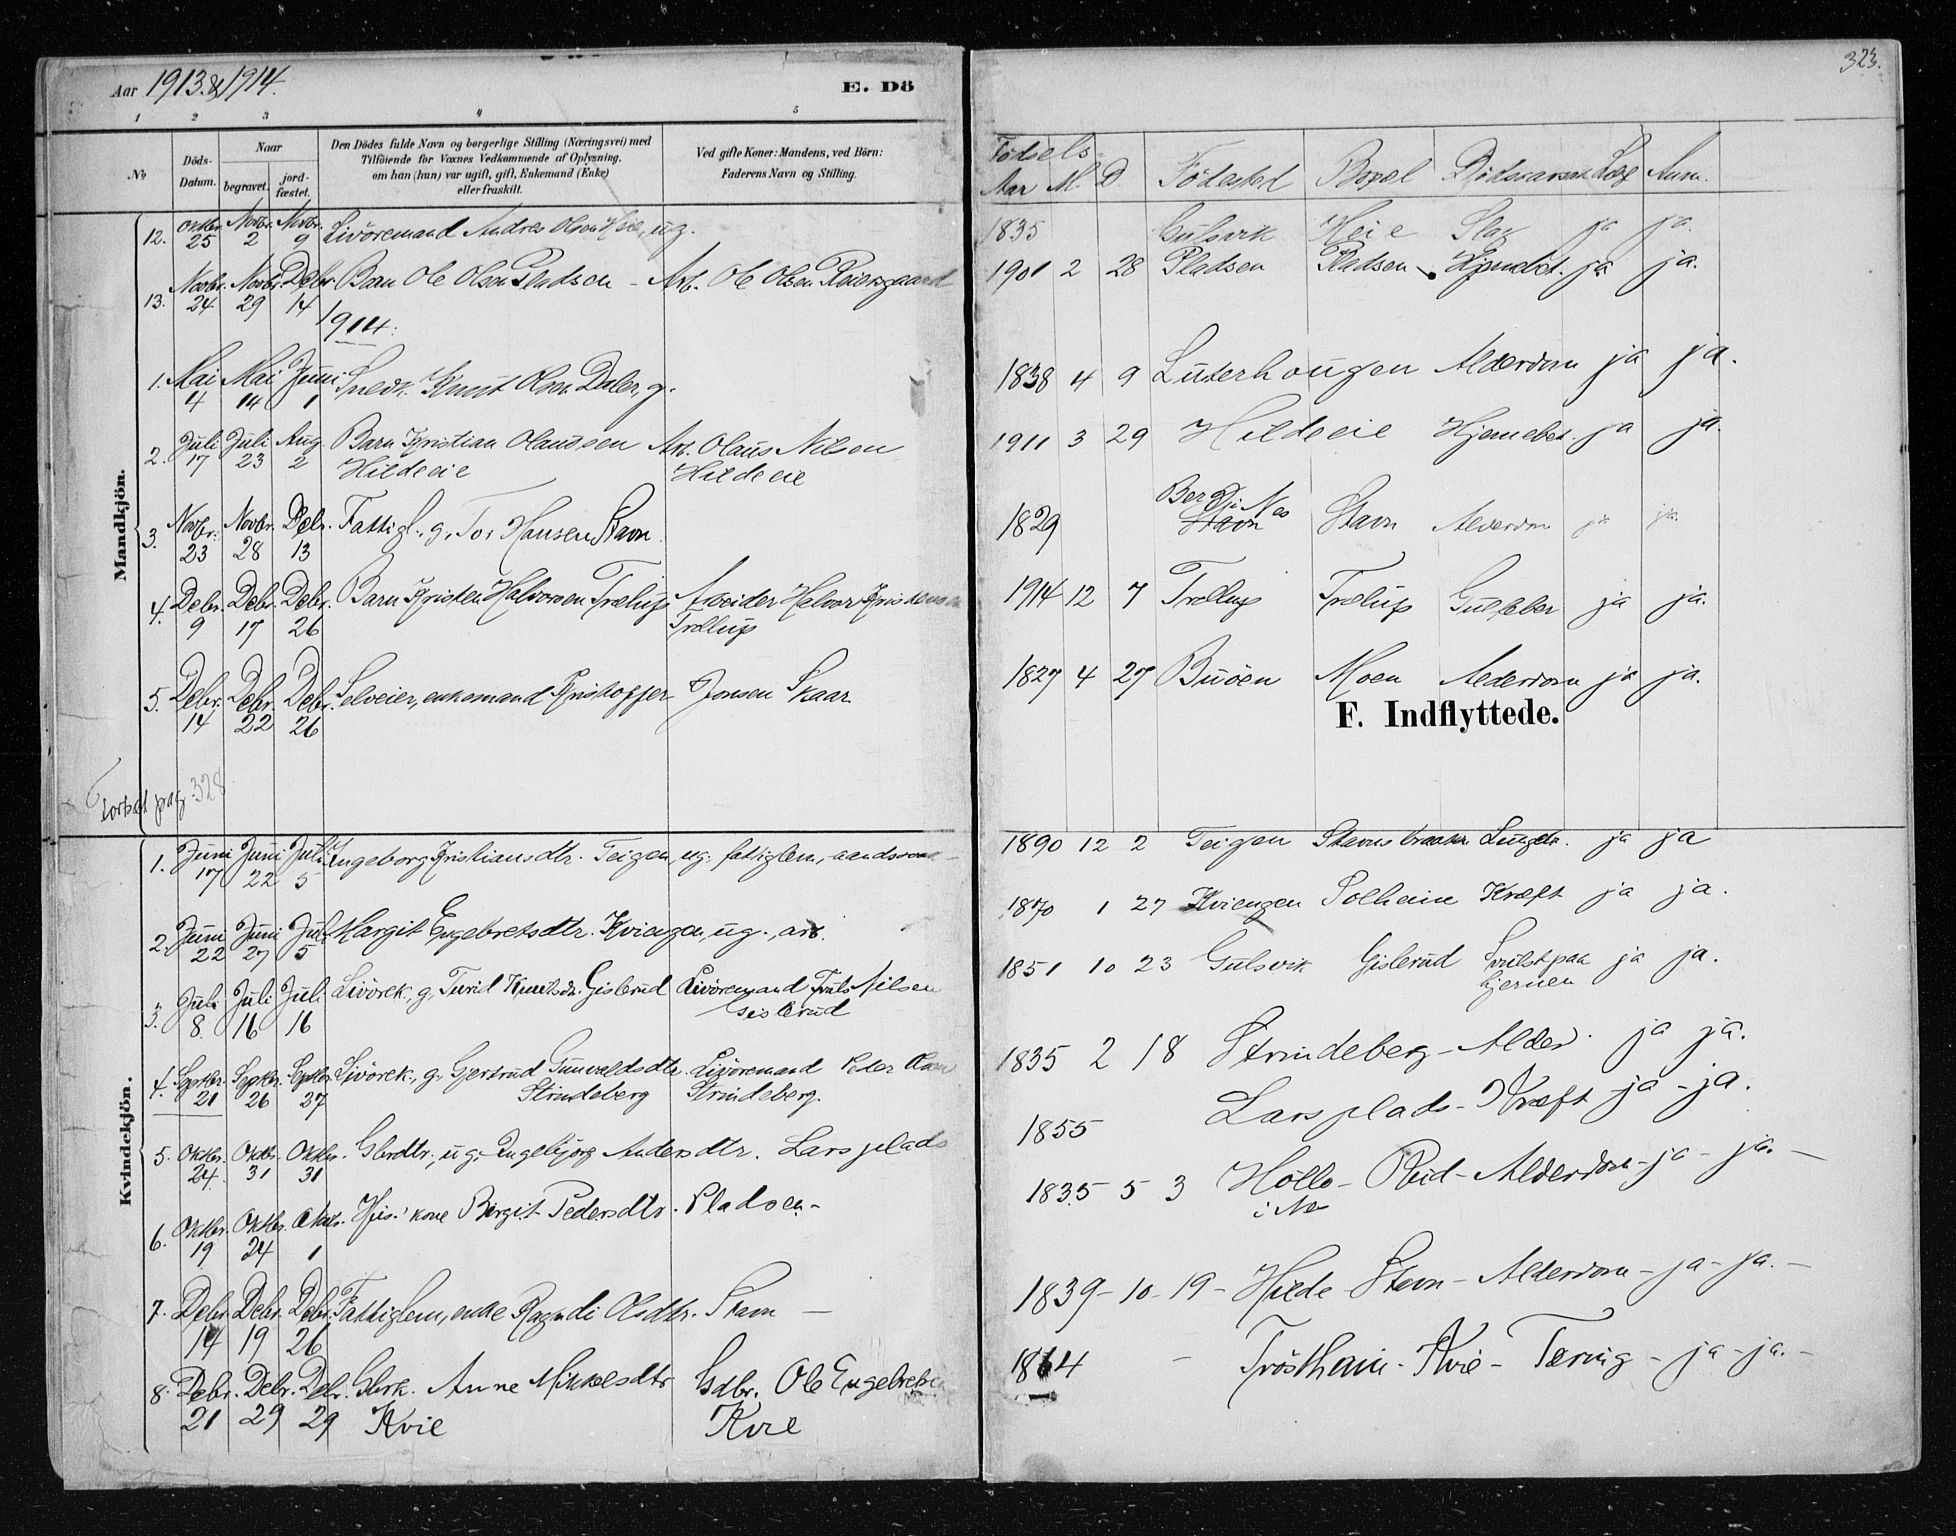 Aar 1913 & 1914.
E. Dö
323.
1 2 3 4 5
No
Döds-Datum.
Naar
begravet.
jord-fæstet.
Den Dödes fulde Navn og borgerlige Stilling (Næringsvei) med
Tilföiende for Voxnes Vedkommende af Oplysning,
om han (hun) var ugift, gift, Enkemand (Enke)
eller fraskilt.
Ved gifte Koner: Mandens, ved Börn:
Faderens Navn og Stilling.
Födsels-
Aar M. D. Födested Bopæl Dödsaarsak Læg Anm.
Mandkjön.
12. Oktbr. 25 Novbr. 2 Novbr. 9 Livöremand Andres Olsen Heie, ug. 1835 Gulsvik Heie Slag ja ja.
13. Novbr. 24 Novbr. 29 Debr. 14 Barn Ole Olsen Pladsen - Arb. Ole Olsen Reiersgaard 1901 2 28 Pladsen Pladsen ja ja.
1914.
1. Mai 4 Mai 14 Juni 1 Snedk. Knut Olsen Daler, g. 1838 4 9 Luterhougen Alderdom ja ja.
2. Juli 17 Juli 23 Aug. 2 Barn Kristian Olaussen Arb. Olaus Nilsen 1911 3 29 Hildeeie Hjernebet. ja ja.
Hildeeie Hildeeie
3. Novbr. 23 Novbr. 28 Debr. 13 Fattigl., g., Tor Hansen Stavn. 1829 Berg i Nes Stavn Stavn Alderdom ja ja.
4. Debr. 9 Debr. 17 Debr. 26 Barn Kristen Halvorsen Trollup Arbeider Halvor Kristensen 1914 12 7 Trollup Trollup Gulfeber ja ja.
Trollup
5. Debr. 14 Debr. 22 Debr. 26 Selveier, enkemand Kristoffer Jonsen Skaar 1827 4 27 Buöen Moen Alderdom ja ja.
F. Indflyttede.
Fortsat pag. 328
Kvindekjön.
1. Juni 17 Juni 22 Juli 5 Ingeborg Kristiansdtr. Teigen, ug. fattiglem, 1890 12 2 Teigen Stavns ja ja
2. Juni 22 Juni 27 Juli 5 Margit Engebretsdtr. Kviengen, ug., arb. 1870 1 27 Kviengen Solheim Kræft ja ja.
3. Juli 8. Juli 16 Juli 16 Livörek., g., Turid Knutsdr. Gislerud Livöremand Nilsen 1851 10 23 Gulsvik Gislerud Svulst paa ja ja.
Gislerud hjernen
4. Septbr. 21 Septbr. 26 Septbr. 27 Livörek., g., Gjertrud Gunvaldsdtr. Livöremand Peder 1835 2 18 Strindeberg - Alder. ja ja.
Strindeberg Strindeberg.
5. Oktbr. 24. Oktbr. 31 Oktbr. 31 Gbrdtr., ug. Engebjörg Andersdtr. Larsplads 1855 Larsplads - Kræft ja - ja.
6. Oktbr. 19 Oktbr. 24 1 kone Birgit Pedersdtr. Pladsen - 1835 5 3 Hollo - Rud - Alderdom - ja - ja. -
i Nes
7. Debr. 14 Debr. 19 Debr. 26 Fattiglem, enke Ragndi Olsdtr. Stavn - 1839 - 10 - 19 - Hilde Stavn - Alderdom - ja - ja. -
8. Debr. 21 Debr. 29 Debr. 29 Gbrk. Anne Mikkelsdtr Gdbr. Ole Engebretsen 1864 - Tröstheim - Kvie - Tæring - ja - ja. -
Kvie Kvie